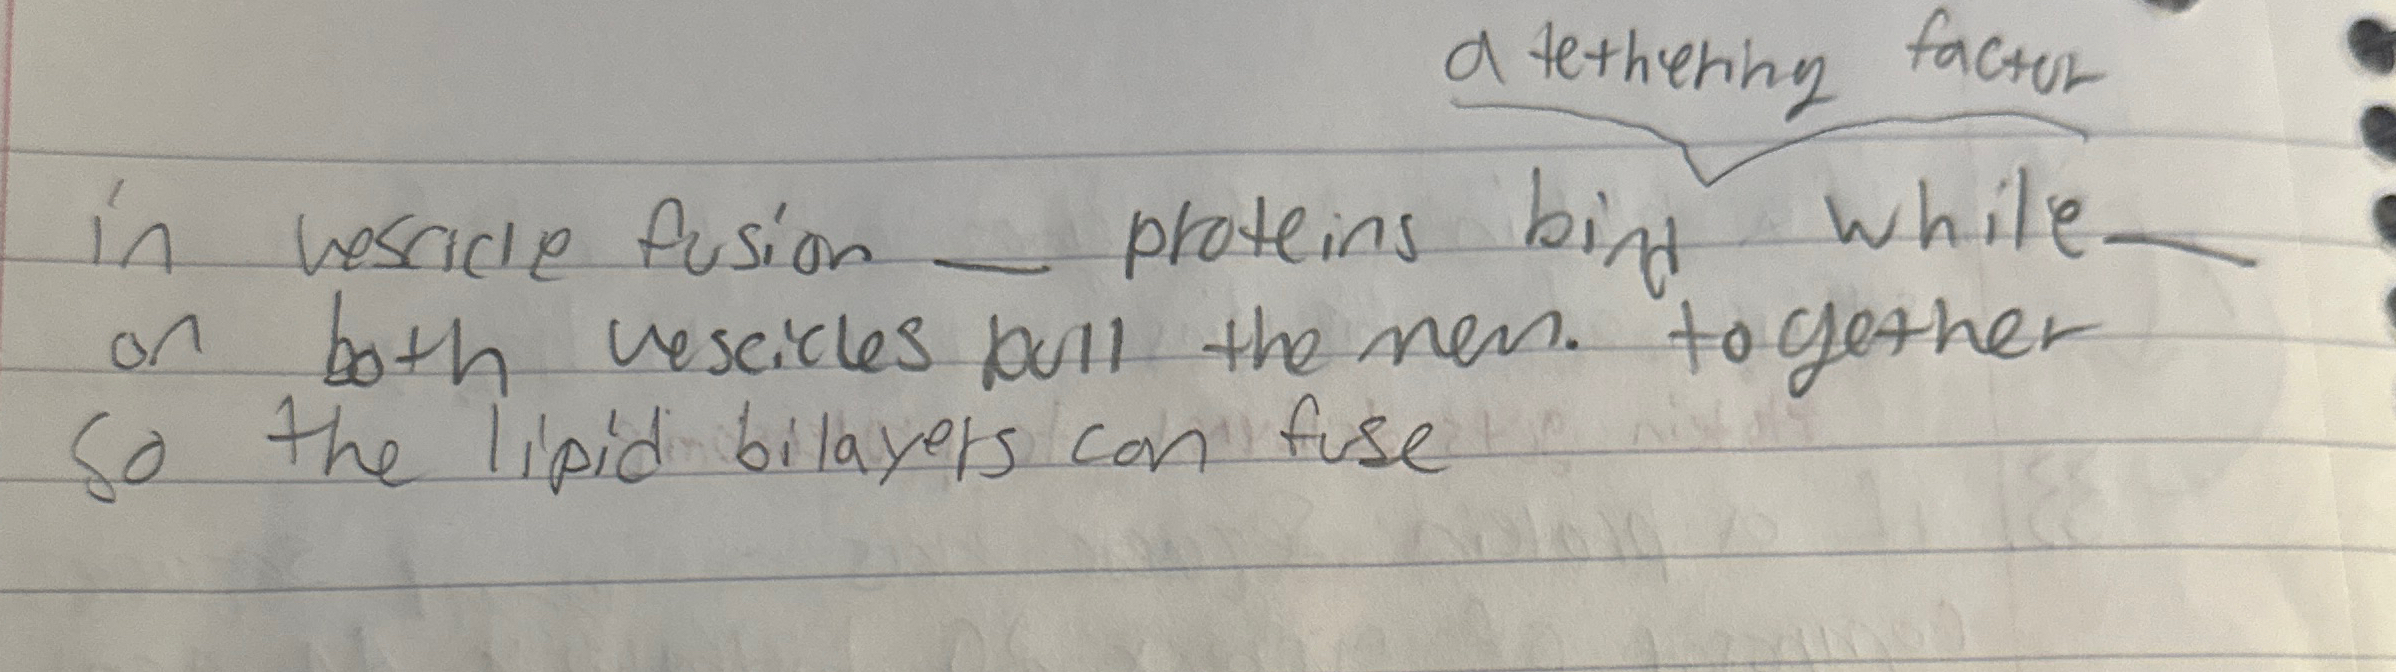 a tethering factor
in vesricle fusion __ proteins bind while __
on both veseicles pull the mem. together
so the lipid bilayers can fuse